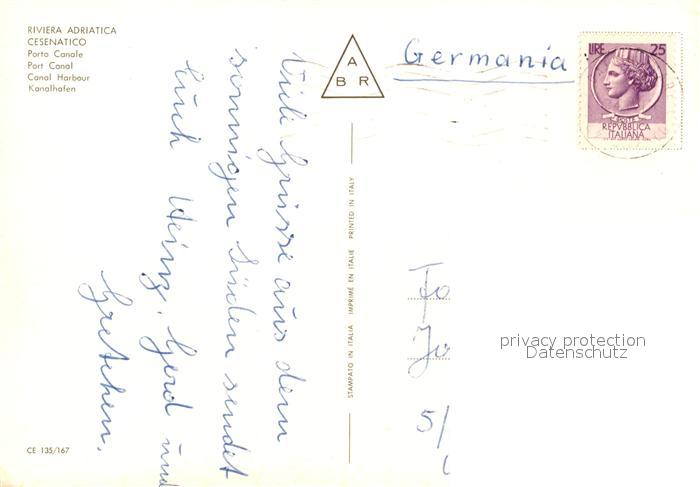 RIVIERA ADRIATICA
CESENATICO
Porto Canale
Port Canal
Canal Harbour
Kanalhafen
Viele Grüsse aus dem
sonnigen Süden sendet
Euch Heinz, Gerd und
Gretchen.
CE 135/167
A
B R
STAMPATO IN ITALIA IMPRIMÉ EN ITALIE PRINTED IN ITALY
Germania
LIRE 25
POSTE
REPVBBLICA
ITALIANA
Fo
Jo
5/
privacy protection
Datenschutz